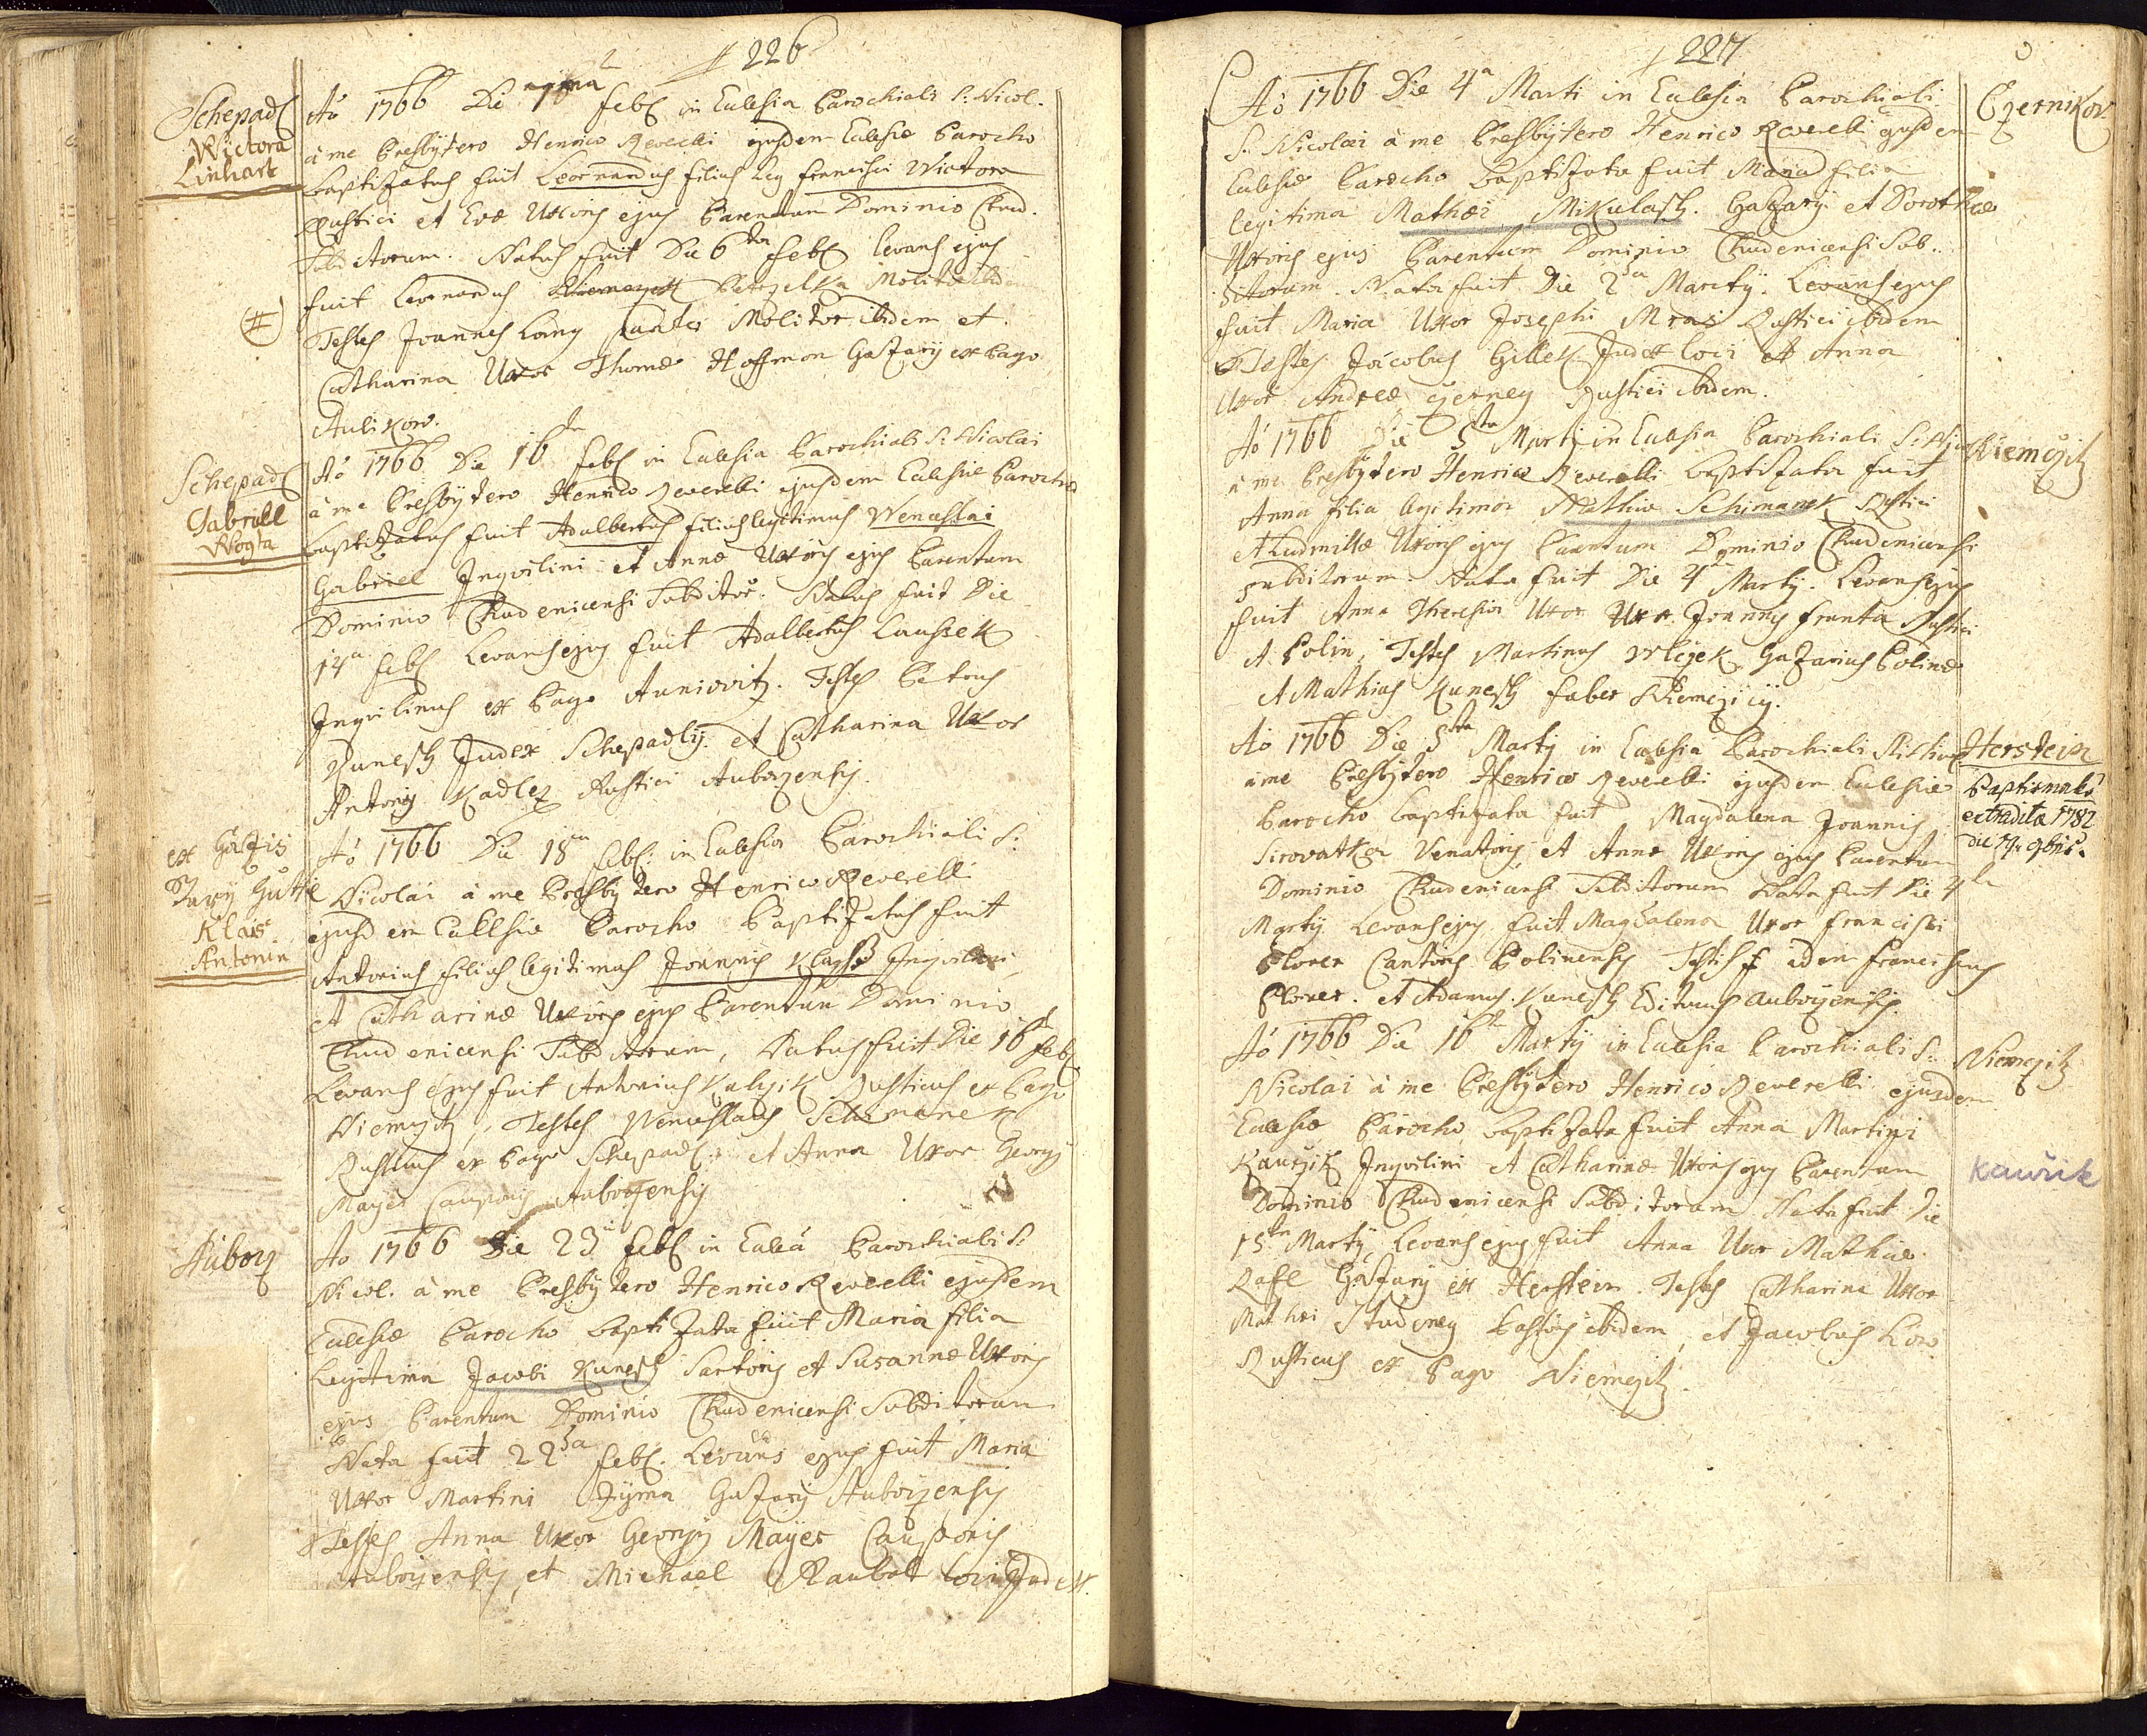 226
Schepadl
Wictora
Linhart
Aó 1766 Die 7ma Febr in Eclesia Parochiali S: Nicol.
à me Presbÿtero Henrico Reverelli ejusdem Eclesiæ Parocho
baptizatus fuit Leonnardus filius leg Francisci Wictora
Rustici et Evæ Uxoris ejus Parentum Dominio Chud.
Subditorum. Natus fuit Die 6ta Febr levans ejus
fuit Leonnardus Petrzelka Molitor ibidem
Testes Joannes Lang Molitor ibidem et
Catharina Uxor Thomæ Hoffman Gazarÿ ex Pago
Aulikow.
Schepadl
Gabriell
Wogta
Aó 1766 Die 16ta Febr in Eclesia Parochiali S: Nicolai
à me Presbÿtero Henrico Reverelli ejusdem Eclesiæ Parocho
baptizatus fuit Adalbertus filius legitimus Wenceslai
Gabriel Inqvilini et Annæ Uxoris ejus Parentum
Dominio Chudenicensi Subditor. Natus fuit Die
14a Febr Levans ejus fuit Adalbertus Laussek
Inqvilinus ex Pago Auniowitz. Testes Petrus
Kunesch Judex Schepadlÿ. et Catharina Uxor
Antonÿ Kadlez Rustici Auborzensis.
ex Gazis
Starÿ Gutie
Klais
Antonin
Aó 1766 Die 18va Febr: in Eclesia Parochiali S:
Nicolai à me Presbÿtero Henrico Reverelli
ejusdem Ecclesiæ Parocho Baptizatus fuit
Antonius filius legitimus Joannis Klayss Inqvilini
et Catharinæ Uxoris ejus Parentum Dominio
Chudenicensi Subditorum, Natus fuit Die 16ta Feb
Levans ejus fuit Antonius Kulzik Rusticus ex Pago
Niemczitz, Testes Wenceslaus Schimanek
Rusticus ex Pago Schepadl: et Anna Uxor Georgÿ
Mayer Cauponis Auborzensis
Auborz
Ao 1766 Die 23a Febr in Eclâ Parochiali S:
Nicol. à me Presbÿtero Henrico Reverelli ejusdem
Eclesiæ Parocho baptizata fuit Maria filia
Legitima Jacobi Kunesch Sartoris et Susannæ Uxoris
ejus Parentum Dominio Chudenicensi Subditorum
Nata fuit 22da Febr. Levans ejus fuit Maria
Uxor Martini Zÿma Gazarÿ Auborzensis
Testes Anna Uxor Georgÿ Mayer Cauponis
Auborzensis, et Michael Raubal loci Judex.
227
Czernikov
Aó 1766 Die 4a Marti in Eclesia Parochiali
S: Nicolai à me Presbÿtero Henrico Reverelli ejusdem
Eclesiæ Parocho baptizata fuit Maria filia
legitima Mathæi Mikulasch. Gazarÿ et Dorotheæ
Uxoris ejus Parentum Dominio Chudenicensi Sub-
ditorum. Nata fuit Die 2da Martÿ. Levans ejus
fuit Maria Uxor Josephi Mraz Rustici ibidem
Testes Jacobus Gillek Judex loci et Anna
Uxor Andreæ Czerney Rustici ibidem.
Niemczitz
Aó 1766 Die 5ta Martÿ in Eclesia Parochiali S: Nico
à me Presbÿtero Henrico Reverelli baptizata fuit
Anna filia legitima Mathiæ Schimanek Rustici
et Ludmillæ Uxoris ejus Parentum Dominio Chudenicensi
Subditorum. Nata fuit Die 4ta Martÿ. Levans ejus
fuit Anna Theresia Uxor Joannis Franta Rustici
A Polin, Testes Martinus Wlczek Gazarius Polinæ
et Mathias Kunesch faber Niemczicÿ.
Herstein
Baptismales
extradita 1782
die 17 9bris.
Aó 1766 Die 5ta Martÿ in Eclesia Parochiali S: Nicol
à me Presbÿtero Henrico Reverelli ejusdem Eclesiæ
Parocho baptizata fuit Magdalena Joannis
Sirovatka Venatoris, et Annæ Uxoris ejus Parentum
Dominio Chudenicensi Subditorum Nata fuit Die 4ta
Martÿ Levans ejus fuit Magdalena Uxor Francisci
Plover Cantoris Polinensis Testes idem Franciscus
Plover. et Adamus Kunesch Edituus Auborzensis.
Niemczitz
Kauřik
Aó 1766 Die 16ta Martÿ in Eclesia Parochiali S:
Nicolai à me Presbÿtero Henrico Reverelli ejusdem
Eclesiæ Parocho baptizata fuit Anna Martini
Kaurzik Inqvilini et Catharinæ Uxoris ejus Parentum
Dominio Chudenicensi Subditorum Nata fuit Die
15ta Martÿ, Levans ejus fuit Anna Uxor Mathiæ
Gazarÿ ex Herstein. Testes Catharina Uxor
Mathæi Studeney Pastoris ibidem, et Jacobus Kow
Rusticus ex Pago Niemczitz.